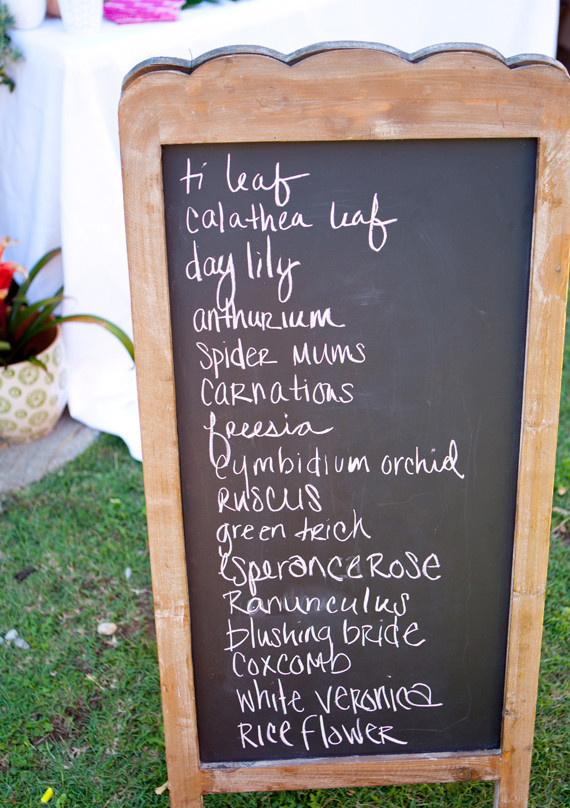 ti leaf
calathea leaf
day lily
anthurium
Spider Mums
CARNations
freesia
Cymbidium orchid
RUSCUS
green trick
Esperance Rose
Ranunculus
blushing bride
Coxcomb
white veronica
Rice flower